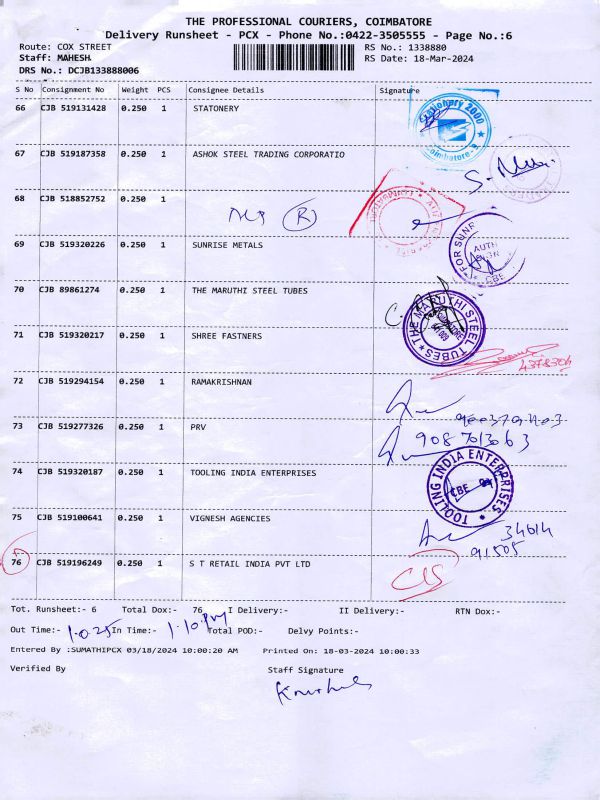 THE PROFESSIONAL COURIERS, COIMBATORE
Delivery Runsheet - PCX - Phone No.:0422-3505555 - Page No.:6
Route: COX STREET RS No.: 1338880
Staff: MAHESH RS Date: 18-Mar-2024
DRS No.: DCJB133888006
S No Consignment No Weight PCS Consignee Details Signature
66 CJB 519131428 0.250 1 STATONERY
Stationery 2000
Coimbatore-
67 CJB 519187358 0.250 1 ASHOK STEEL TRADING CORPORATIO
68 CJB 518852752 0.250 1
69 CJB 519320226 0.250 1 SUNRISE METALS
FOR SUNR
AUTH
CBE
70 CJB 89861274 0.250 1 THE MARUTHI STEEL TUBES
THE MARUTHI STEEL TUBES
71 CJB 519320217 0.250 1 SHREE FASTNERS
72 CJB 519294154 0.250 1 RAMAKRISHNAN
73 CJB 519277326 0.250 1 PRV
9087013063
74 CJB 519320187 0.250 1 TOOLING INDIA ENTERPRISES
TOOLING INDIA ENTERPRISES
CBE
75 CJB 519100641 0.250 1 VIGNESH AGENCIES
34614
91505
76 CJB 519196249 0.250 1 S T RETAIL INDIA PVT LTD
Tot. Runsheet:- 6 Total Dox:- 76 I Delivery:- II Delivery:- RTN Dox:-
Out Time:- 1.0.25 In Time:- 1.10 PM Total POD:- Delvy Points:-
Entered By :SUMATHIPCX 03/18/2024 10:00:20 AM Printed On: 18-03-2024 10:00:33
Verified By Staff Signature